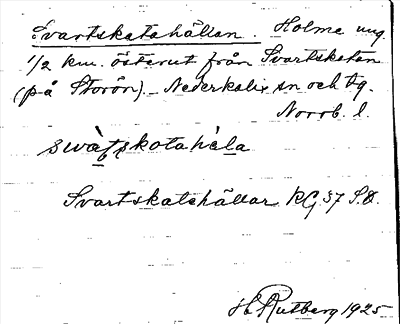 Svartskatahällan. Holme ung.
1/2 km. österut från Svartskatan
(på Storön). Nederkalix sn och tg.
Norrb. l.
swàţskotahèla
Svartskatahällar RG 37 S.O.
H Rutberg 1925